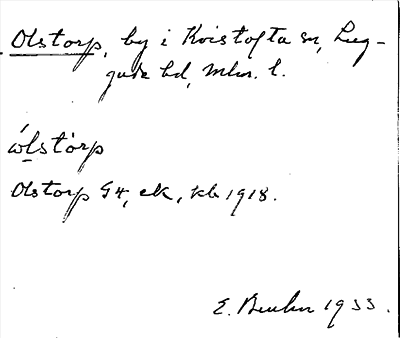 Olstorp, by i Kvistofta sn, Lug-
gude hd, Mlm. l.
ẃlstòrp
Olstorp G4, ek, kb 1918.
E. 1933.